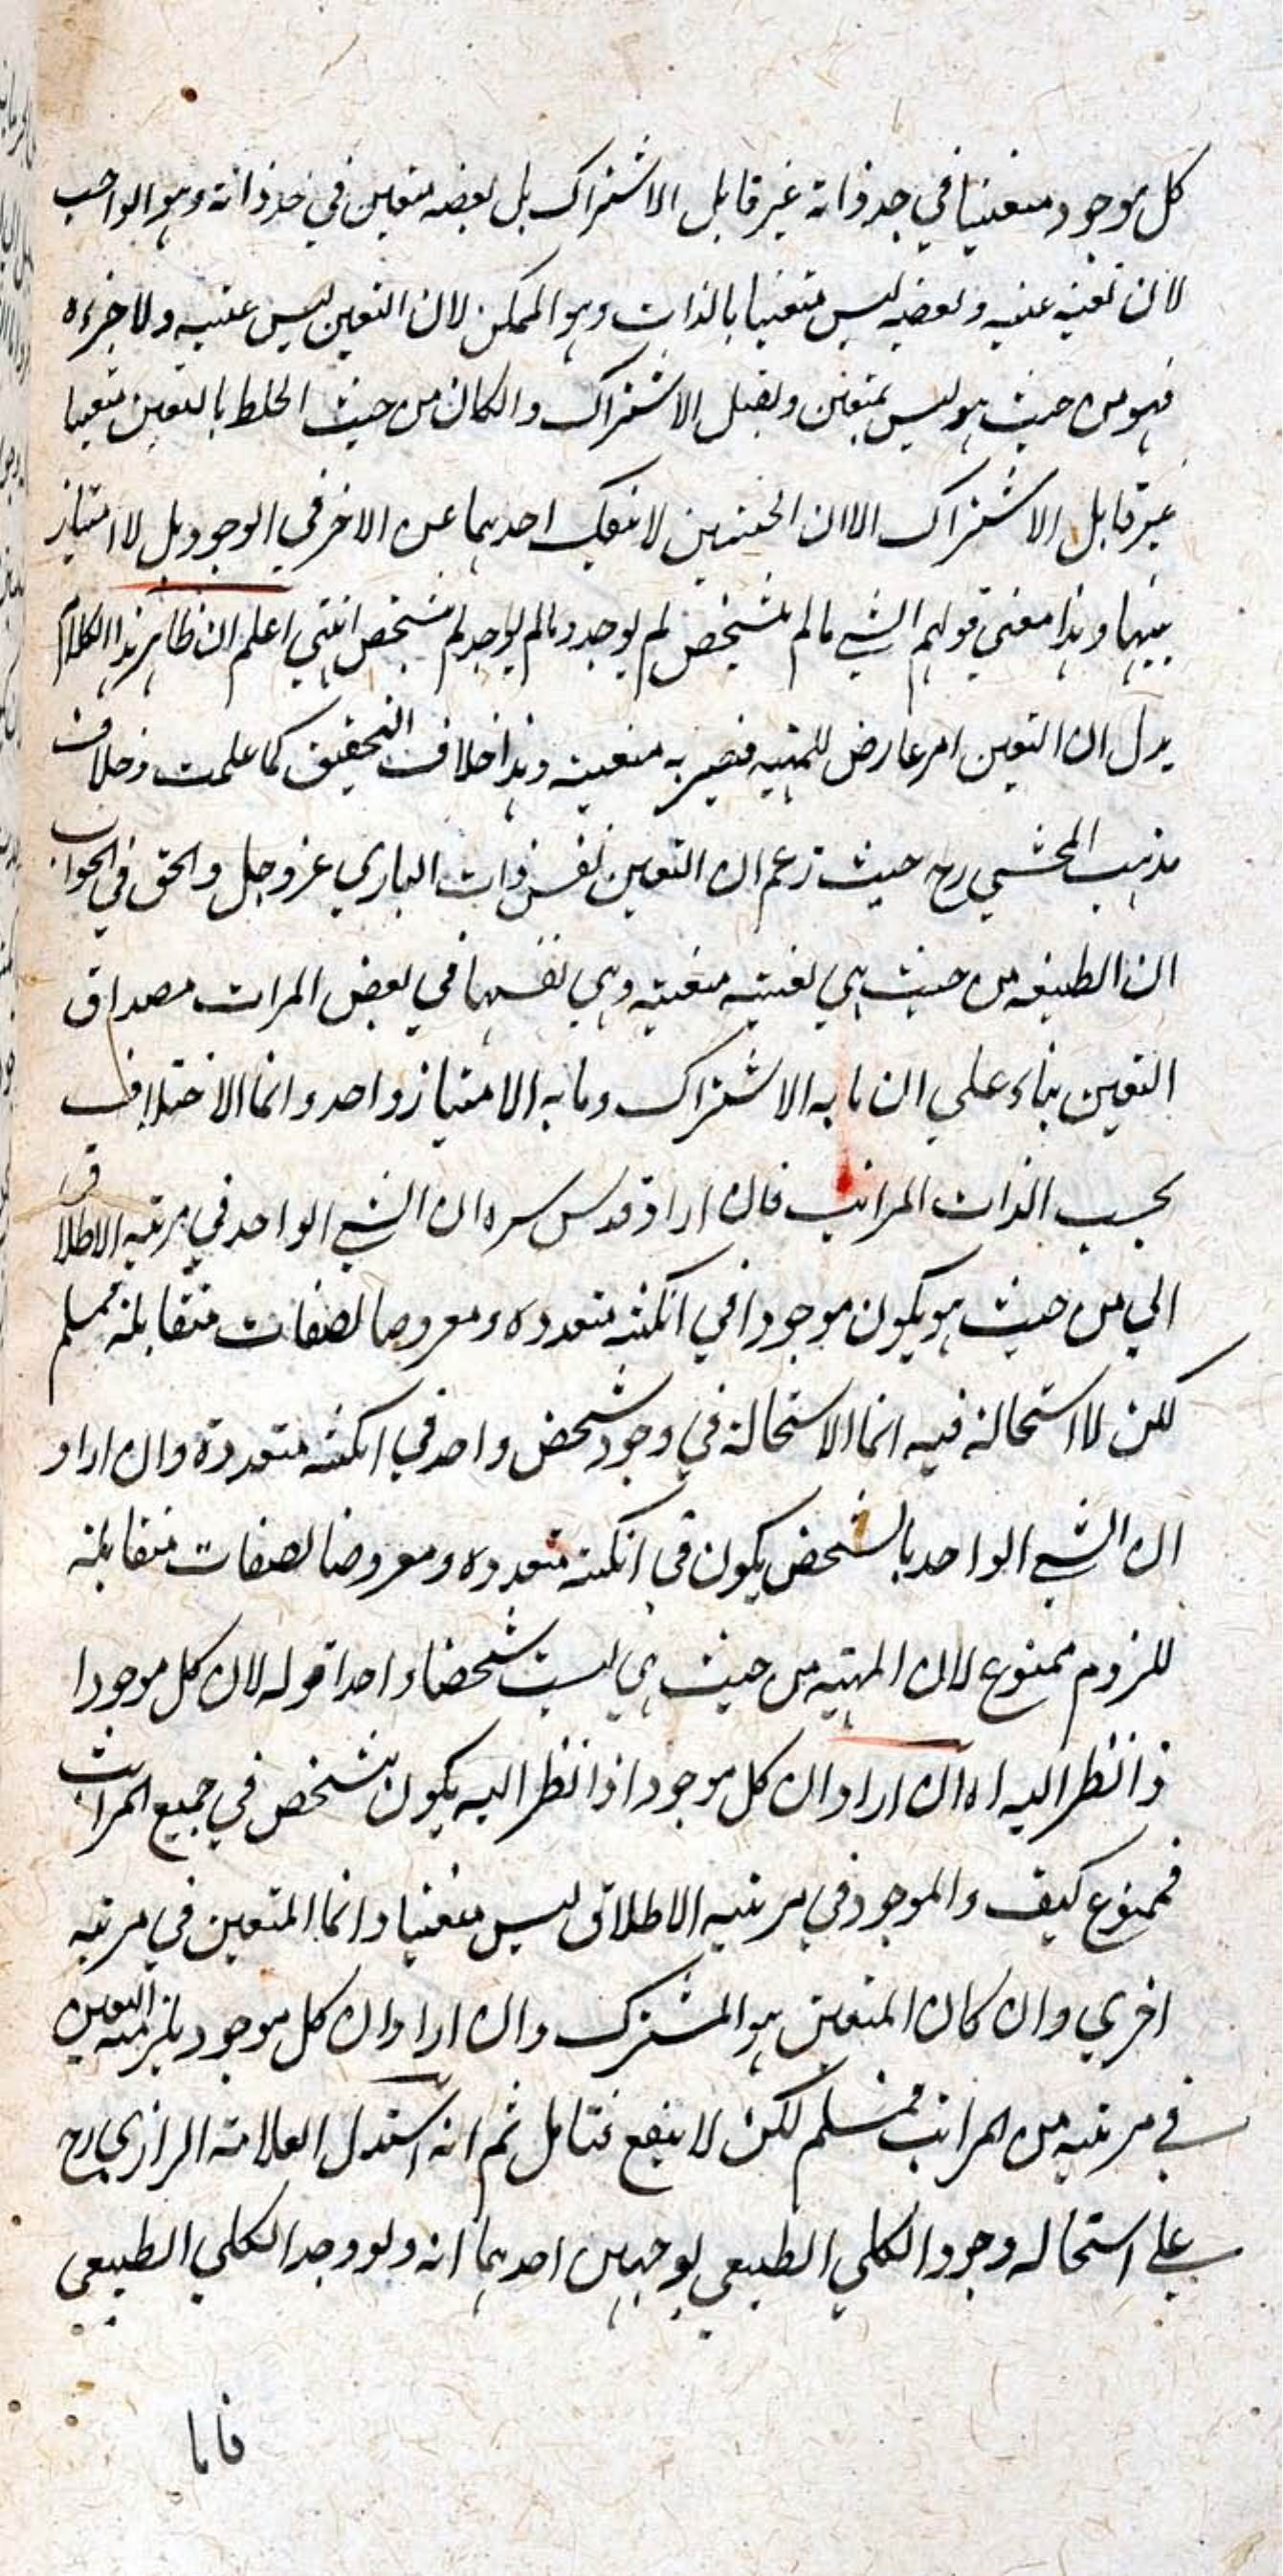 كل موجود متعينا في حد ذاته غير قابل الاشتراك بل بعضه متعين في حد ذاته وهو الواجب
لان تعينه عينه وبعضه ليس متعينا بالذات وهو الممكن لان التعين ليس عينه ولا جزءه
فهو من حيث هو ليس بمتعين ويقبل الاشتراك والكان من حيث الخلط بالتعين متعينا
غير قابل الاشتراك الا ان الحيثيتين لا ينفك احدهما عن الاخر في الوجود بل لا امتياز
بينهما وهذا معني قولهم الشيء ما لم يتشخص لم يوجد وما لم يوجد لم يتشخص انتهي اعلم ان ظاهر هذا الكلام
يدل ان التعين امر عارض للمهية فتصير به متعينة وهذا خلاف التحقيق كما علمت وخلاف
مذهب المحشي رح حيث زعم ان التعين نفس ذات الباري عز وجل والحق في الجواب
ان الطبيعة من حيث هي متعينة وهي نفسها في بعض المراتب مصداق
التعين بناء علي ان ما به الاشتراك وما به الامتياز واحد وانما الاختلاف
بحسب الذات المراتب فان اراد قدس سره ان الشيء الواحد في مرتبة الاطلاق
اي من حيث هو يكون موجودا في امكنة متعددة ومعروضا لصفات متقابلة فمسلم
لكن لا استحالة فيه انما الاستحالة في وجود شخص واحد في امكنة متعددة وان اراد
ان الشيء الواحد بالشخص يكون في امكنة متعددة ومعروضا لصفات متقابلة
للزوم ممنوع لان المهية من حيث هي ليست شخصا واحدا قوله لان كل موجود ا
ذا نظر اليه اه ان اراد ان كل موجود اذا نظر اليه يكون متشخص في جميع المراتب
فممنوع كيف والموجود في مرتبة الاطلاق ليس متعينا وانما المتعين في مرتبة
اخري وان كان المتعين هو المشترك وان اراد ان كل موجود يلزمه التعين
في مرتبة من المراتب فمسلم لكن لا ينفع فتامل ثم انه استدل العلامة الرازي رح
علي استحالة وجود الكلي الطبيعي بوجهين احدهما انه ولو وجد الكلي الطبيعي
فاما